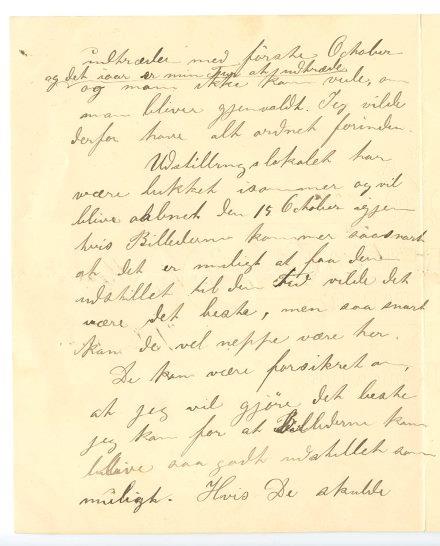 indtræder med förste October
og det iaar er min Tur at indtræde
og man ikke kan vide, om
man bliver gjenvalgt. Jeg vilde
derfor have alt ordnet forinden.
Udstillingslokalet har
være lukket isommer og vil
blive aabnet den 15 October igjen
hvis Billederne kommer saasnart
at det er muligt at faa dem
udstillet til den Tid vilde det
være det beste, men saa snart
kan de vel neppe være her.
De kan være forsikret om,
at jeg vil gjöre det beste
jeg kan for at Billederne kan
blive saa godt udstillet som
muligt. Hvis De skulde